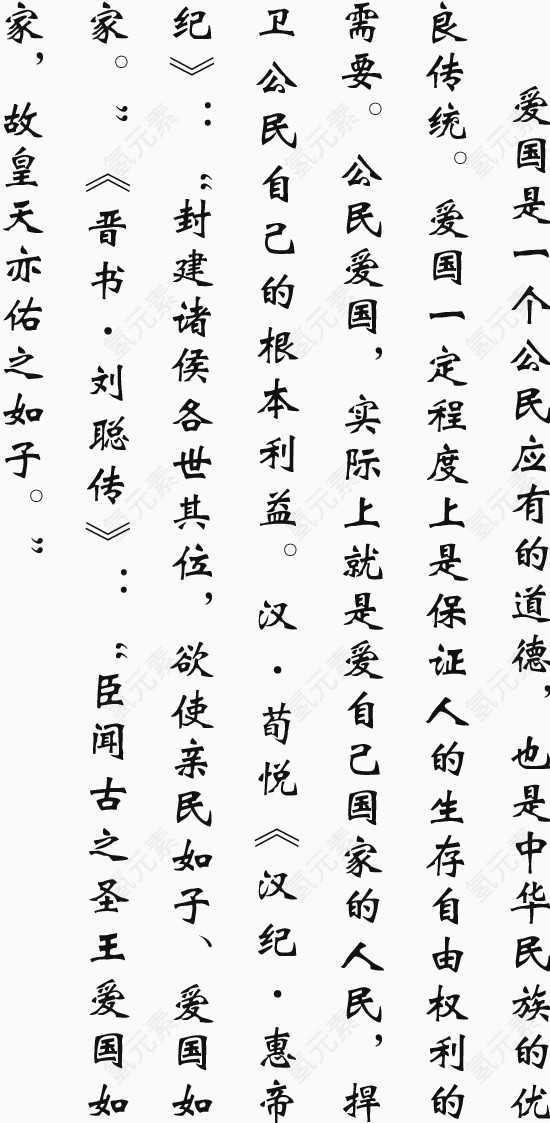 爱国是一个公民应有的道德，也是中华民族的优
良传统。爱国一定程度上是保证人的生存自由权利的
需要。公民爱国，实际上就是爱自己国家的人民，捍
卫公民自己的根本利益。汉·荀悦《汉纪·惠帝
纪》：“封建诸侯各世其位，欲使亲民如子、爱国如
家。”《晋书·刘聪传》：“臣闻古之圣王爱国如
家，故皇天亦佑之如子。”
氢元素